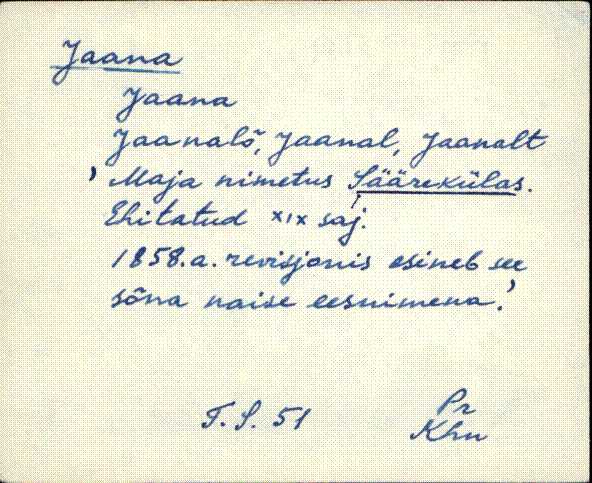 Jaana
Jaana
Jaanalõ, Jaanal, Jaanalt
' Maja nimetus Säärekülas.
Ehitatud XIX saj.
1858.a. revisjonis esineb see
sõna naise eesnimena.'
T.S. 51
Pr
Khn